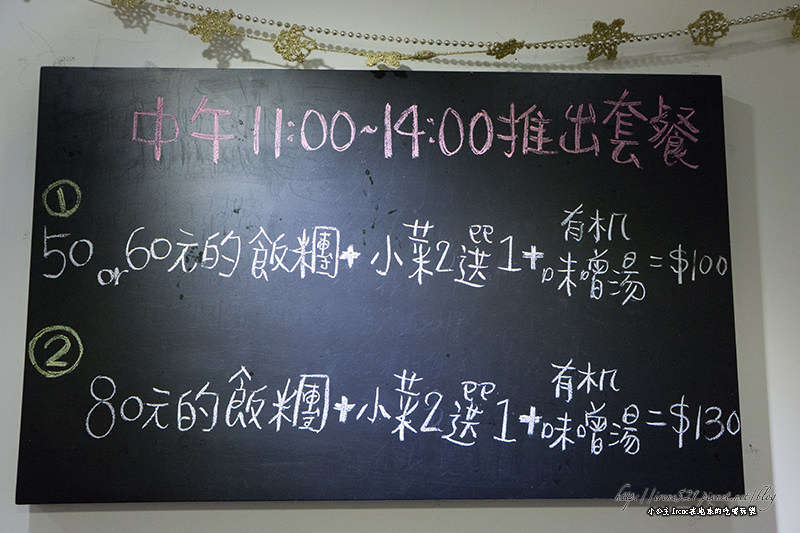 中午11:00~14:00推出套餐
①
50 or 60元的飯糰+小菜2選1+有机味噌湯=$100
②
80元的飯糰+小菜2選1+有机味噌湯=$130
http://irene521.pixnet.net/blog
小公主Irene在地球的吃喝玩樂